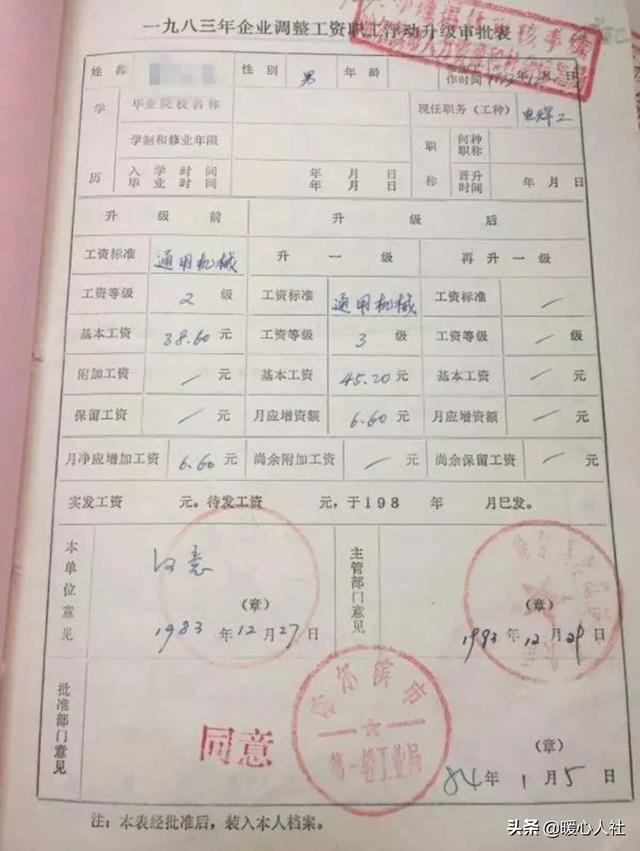 一九八三年企业调整工资职工浮动升级审批表
姓名 性别 男 作时间 年 月 日
学历 毕业院校名称 现任职务(工种) 电焊工
学制和修业年限 职称 何种职称
入学时间 年 月 日
毕业时间 年 月 日 晋升时间 年 月 日
升级前 升级后
工资标准 通用机械 升一级 再升一级
工资等级 2 级 工资标准 通用机械 工资标准 /
基本工资 38.60 元 工资等级 3 级 工资等级 / 级
附加工资 / 元 基本工资 45.20 元 基本工资 / 元
保留工资 / 元 月应增资额 6.60 元 月应增资额 / 元
月净应增加工资 6.60 元 尚余附加工资 / 元 尚余保留工资 / 元
实发工资 元。待发工资 元,于198 年 月已发。
本单位意见 同意 主管部门意见
(章) (章)
1983年12月27日 1983年12月29日
批准部门意见 同意 哈尔滨市
第一轻工业局 (章)
84年1月5日
注:本表经批准后,装入本人档案。
头条 @暖心人社